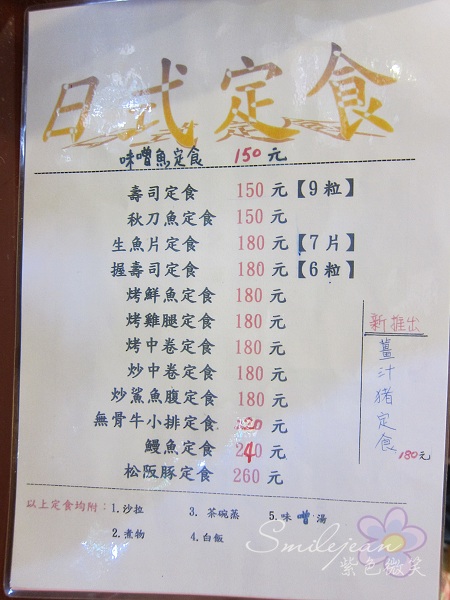 日式定食
味噌魚定食 150元
壽司定食 150元【9粒】
秋刀魚定食 150元
生魚片定食 180元【7片】
握壽司定食 180元【6粒】
烤鮮魚定食 180元
烤雞腿定食 180元
烤中卷定食 180元
炒中卷定食 180元
炒鯊魚腹定食 180元
無骨牛小排定食 元
鰻魚定食 240元
松阪豚定食 260元
新推出
薑汁豬定食 180元
以上定食均附：1.沙拉 3.茶碗蒸 5.味噌湯
2.煮物 4.白飯
Smilejean
紫色微笑